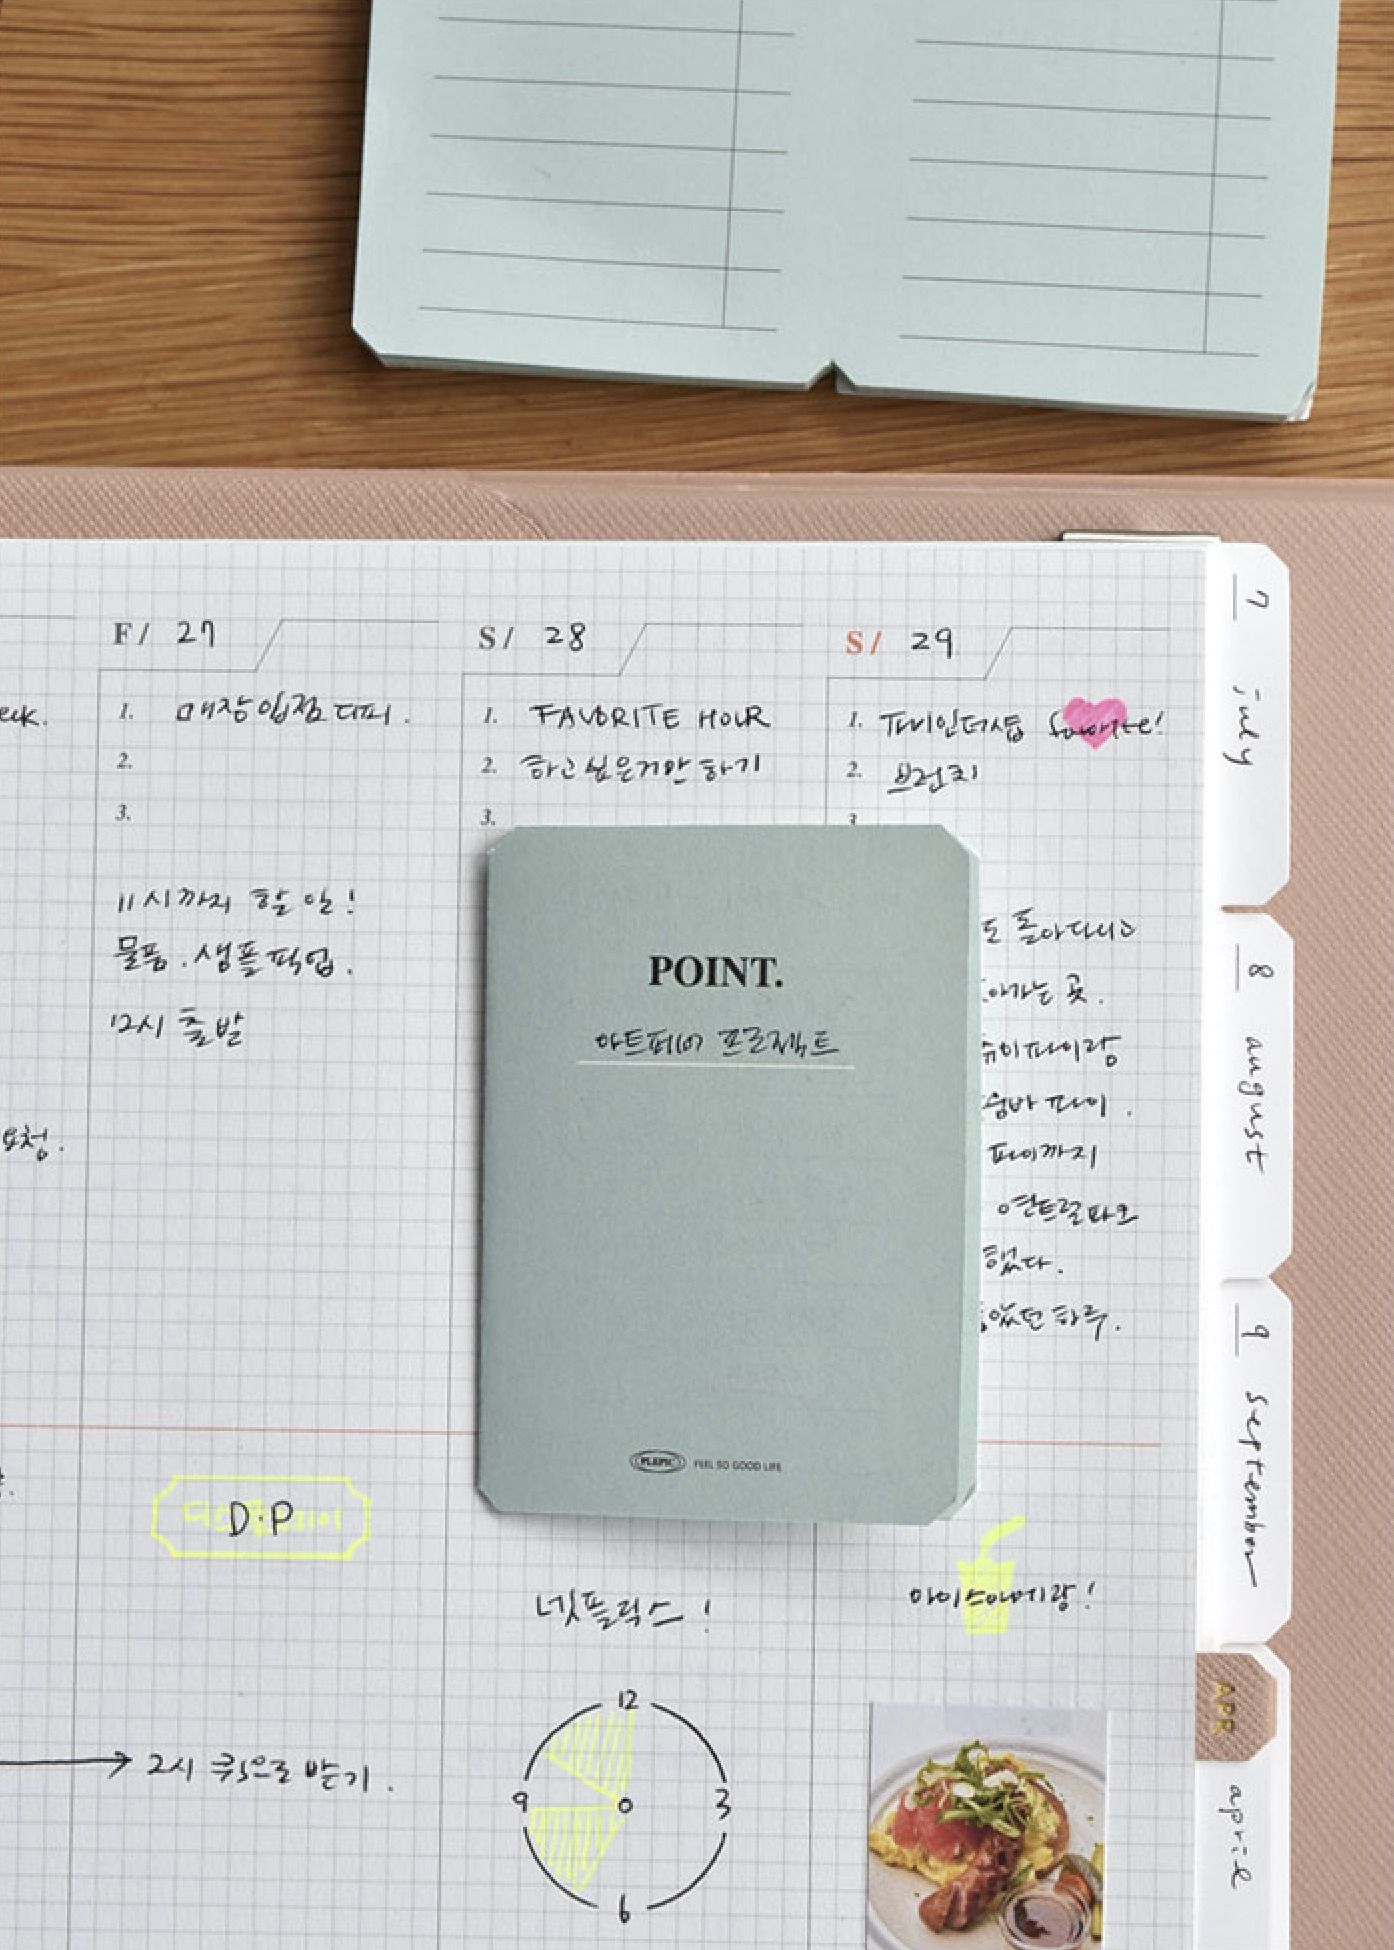 F/ 27
S/ 28
S/ 29
eek.
1. 매장입점 디피.
2.
3.
1. FAVORITE HOUR
2. 하고싶은거만 하기
3.
1. 파이인더샵 favorite!
2. 브런치
3
11시까지 할 일!
물품. 샘플픽업.
12시 출발
요청.
도 돌아다니고
아가는 곳.
슈이파이랑
숨바 파이.
파이까지
했다.
었던 하루.
POINT.
아트페어 프로젝트
PLEPIC FEEL SO GOOD LIFE
D.P
넷플릭스!
아이스아메랑!
2시 퀵으로 받기.
12
9 0 3
6
7 july
8 august
9 september
APR
april